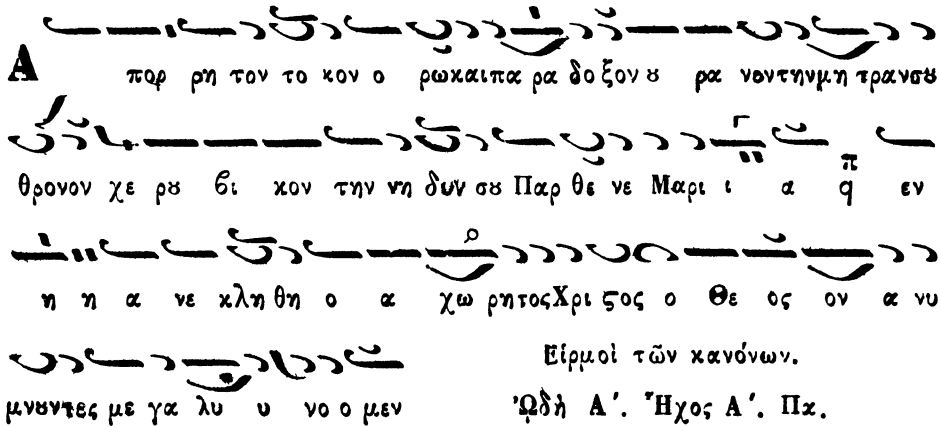 Α πορ ρη τον το κον ο ρωκαιπα ρα δο ξον ȣ ρα νοντηνμη τρανσȣ
θρονον χε ρȣ βι κον την νη δυν σȣ Παρ θε νε Μαρι ι α π q εν
η η α νε κλη θη ο α χω ρητοςΧρι ϛος ο Θε ος ον α νυ
μνȣντες με γα λυ υ νο ο μεν
Εἱρμοὶ τῶν κανόνων.
ᾨδὴ Α΄. Ἦχος Α΄. Πα.